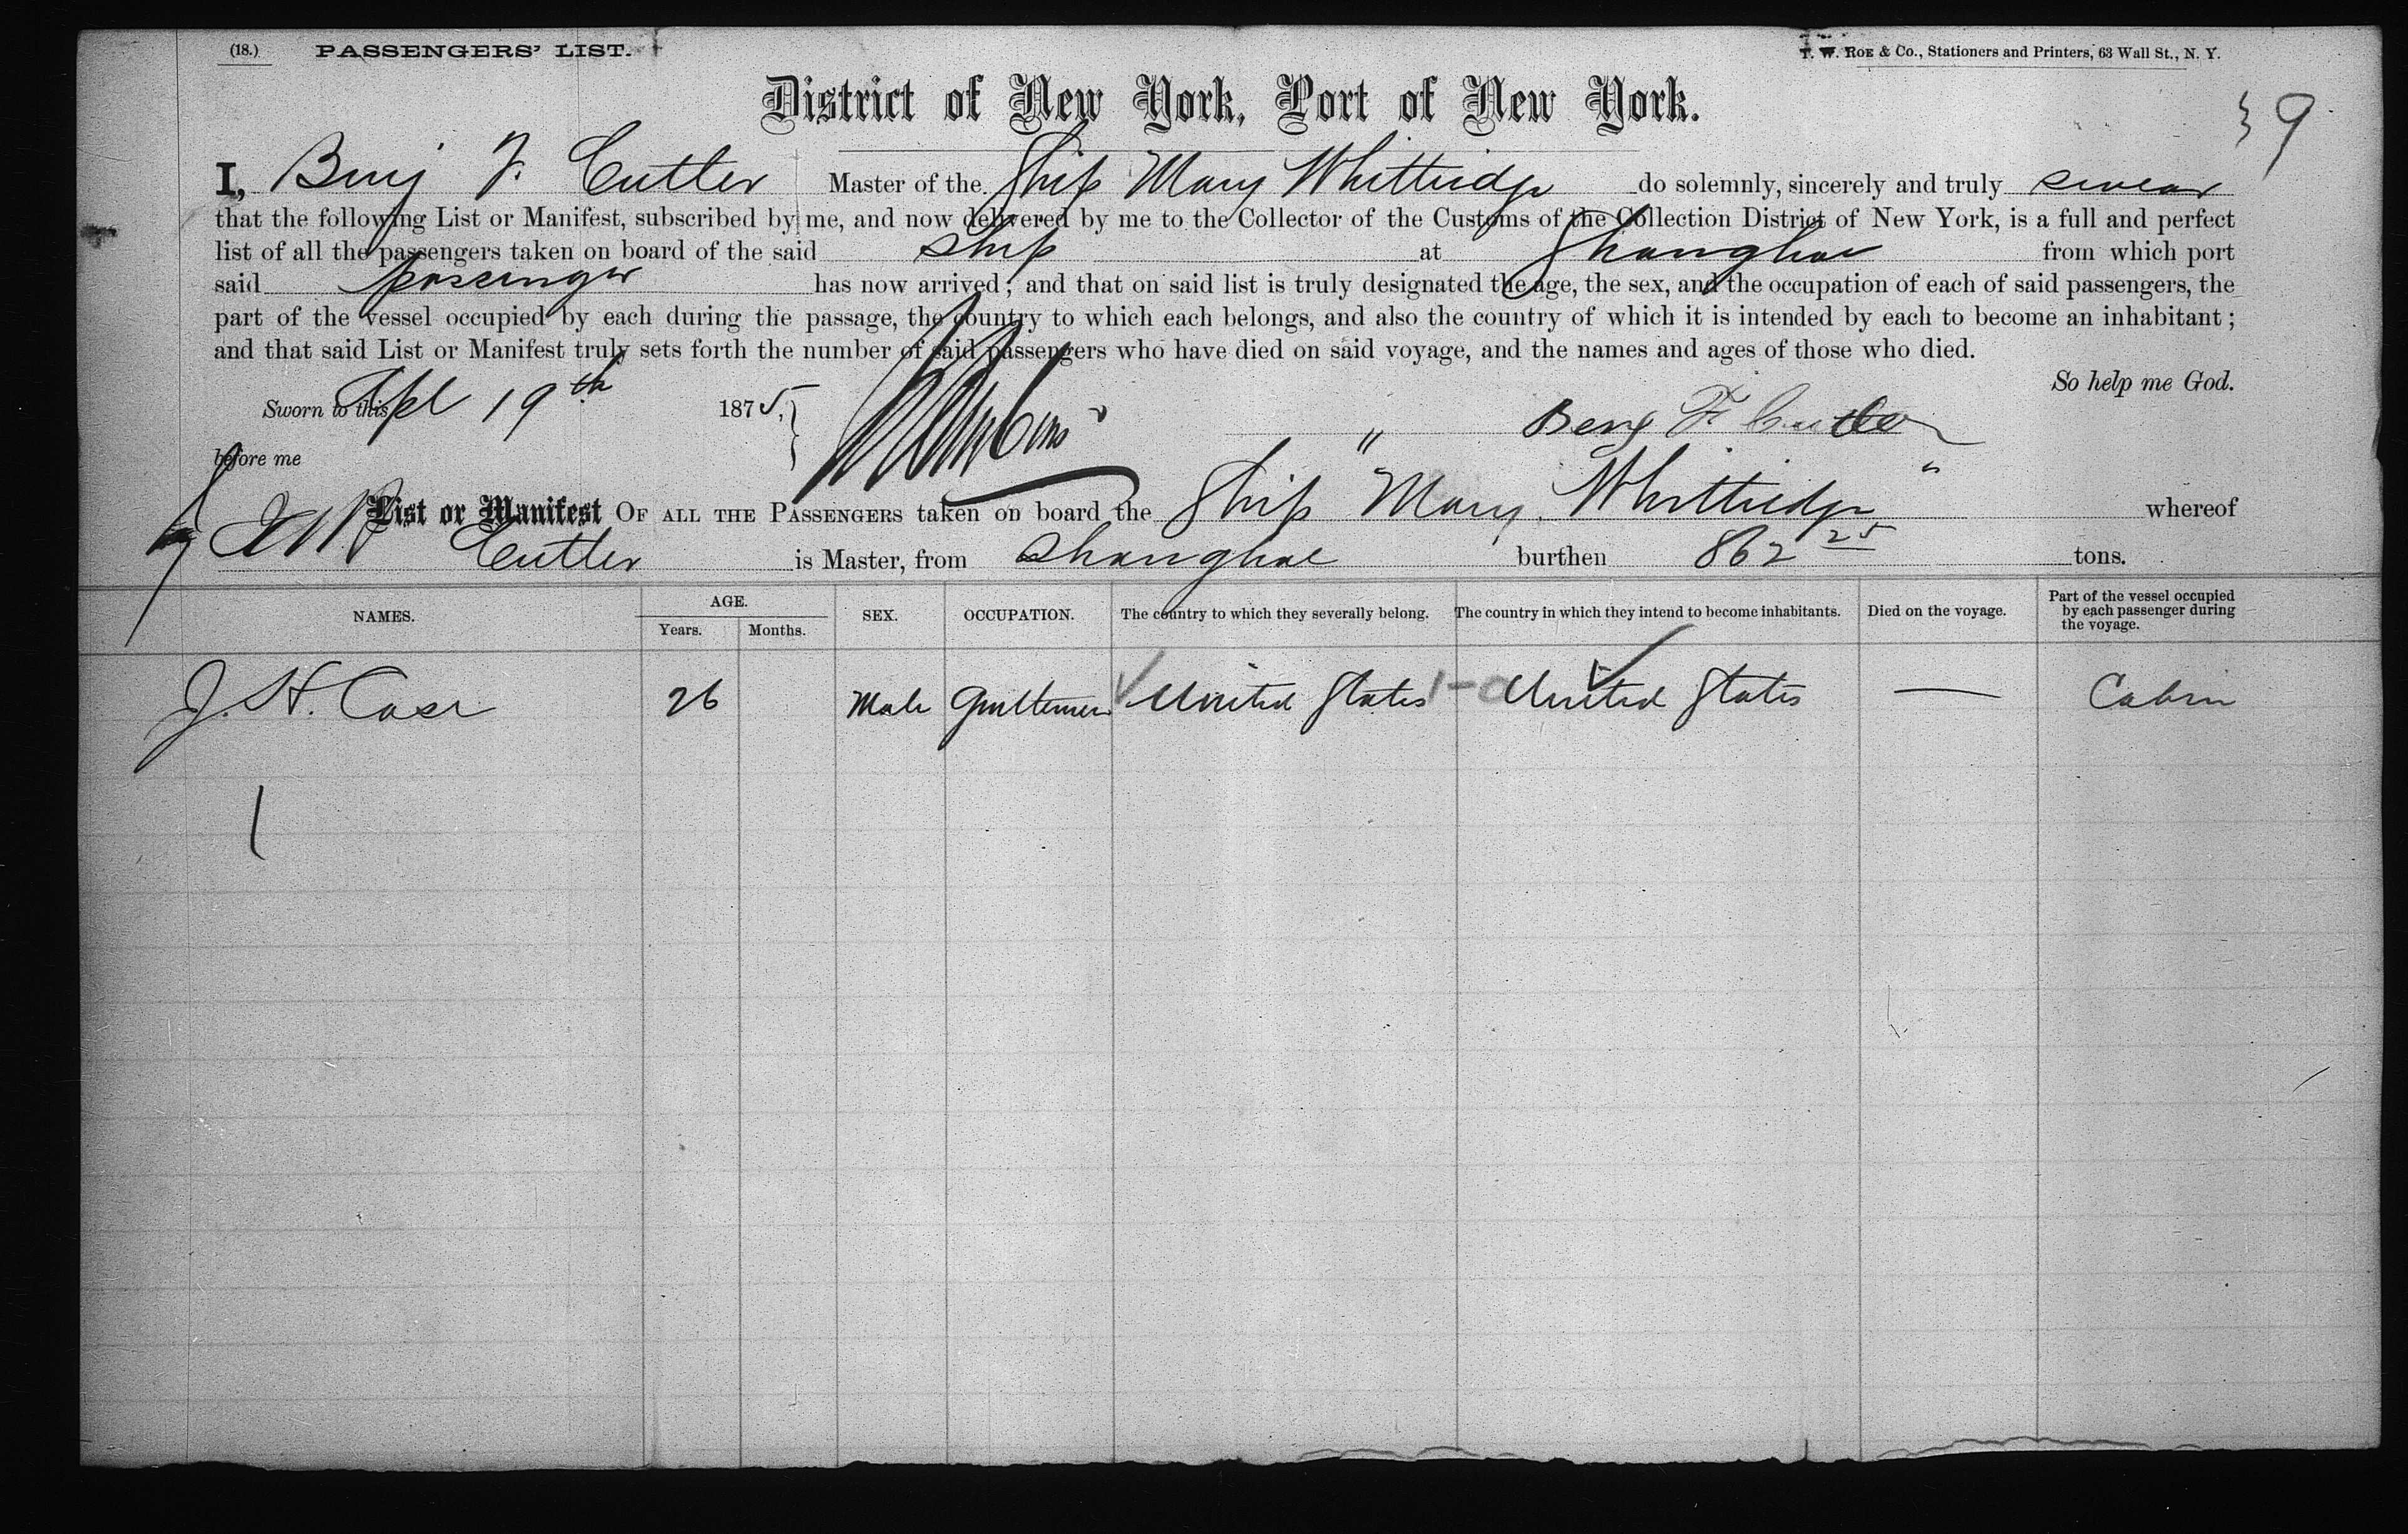 (18.) PASSENGERS' LIST. T. W. ROE & Co., Stationers and Printers, 63 Wall St., N. Y.
District of New York, Port of New York.
9
I, Benj F. Cutler Master of the Ship Mary Whittridge do solemnly, sincerely and truly swear
that the following List or Manifest, subscribed by me, and now delivered by me to the Collector of the Customs of the Collection District of New York, is a full and perfect
list of all the passengers taken on board of the said ship at Shanghae from which port
said passenger has now arrived; and that on said list is truly designated the age, the sex, and the occupation of each of said passengers, the
part of the vessel occupied by each during the passage, the country to which each belongs, and also the country of which it is intended by each to become an inhabitant;
and that said List or Manifest truly sets forth the number of said passengers who have died on said voyage, and the names and ages of those who died.
So help me God.
Sworn to this Apl 19th 1875,
Benj F. Cutler
before me
List or Manifest OF ALL THE PASSENGERS taken on board the Ship "Mary Whittridge" whereof
Cutler is Master, from Shanghae burthen 862 25 tons.
NAMES. AGE. Years. Months. SEX. OCCUPATION. The country to which they severally belong. The country in which they intend to become inhabitants. Died on the voyage. Part of the vessel occupied by each passenger during the voyage.
J. H. Case 26 Male Gentleman United States 1- United States — Cabin
1